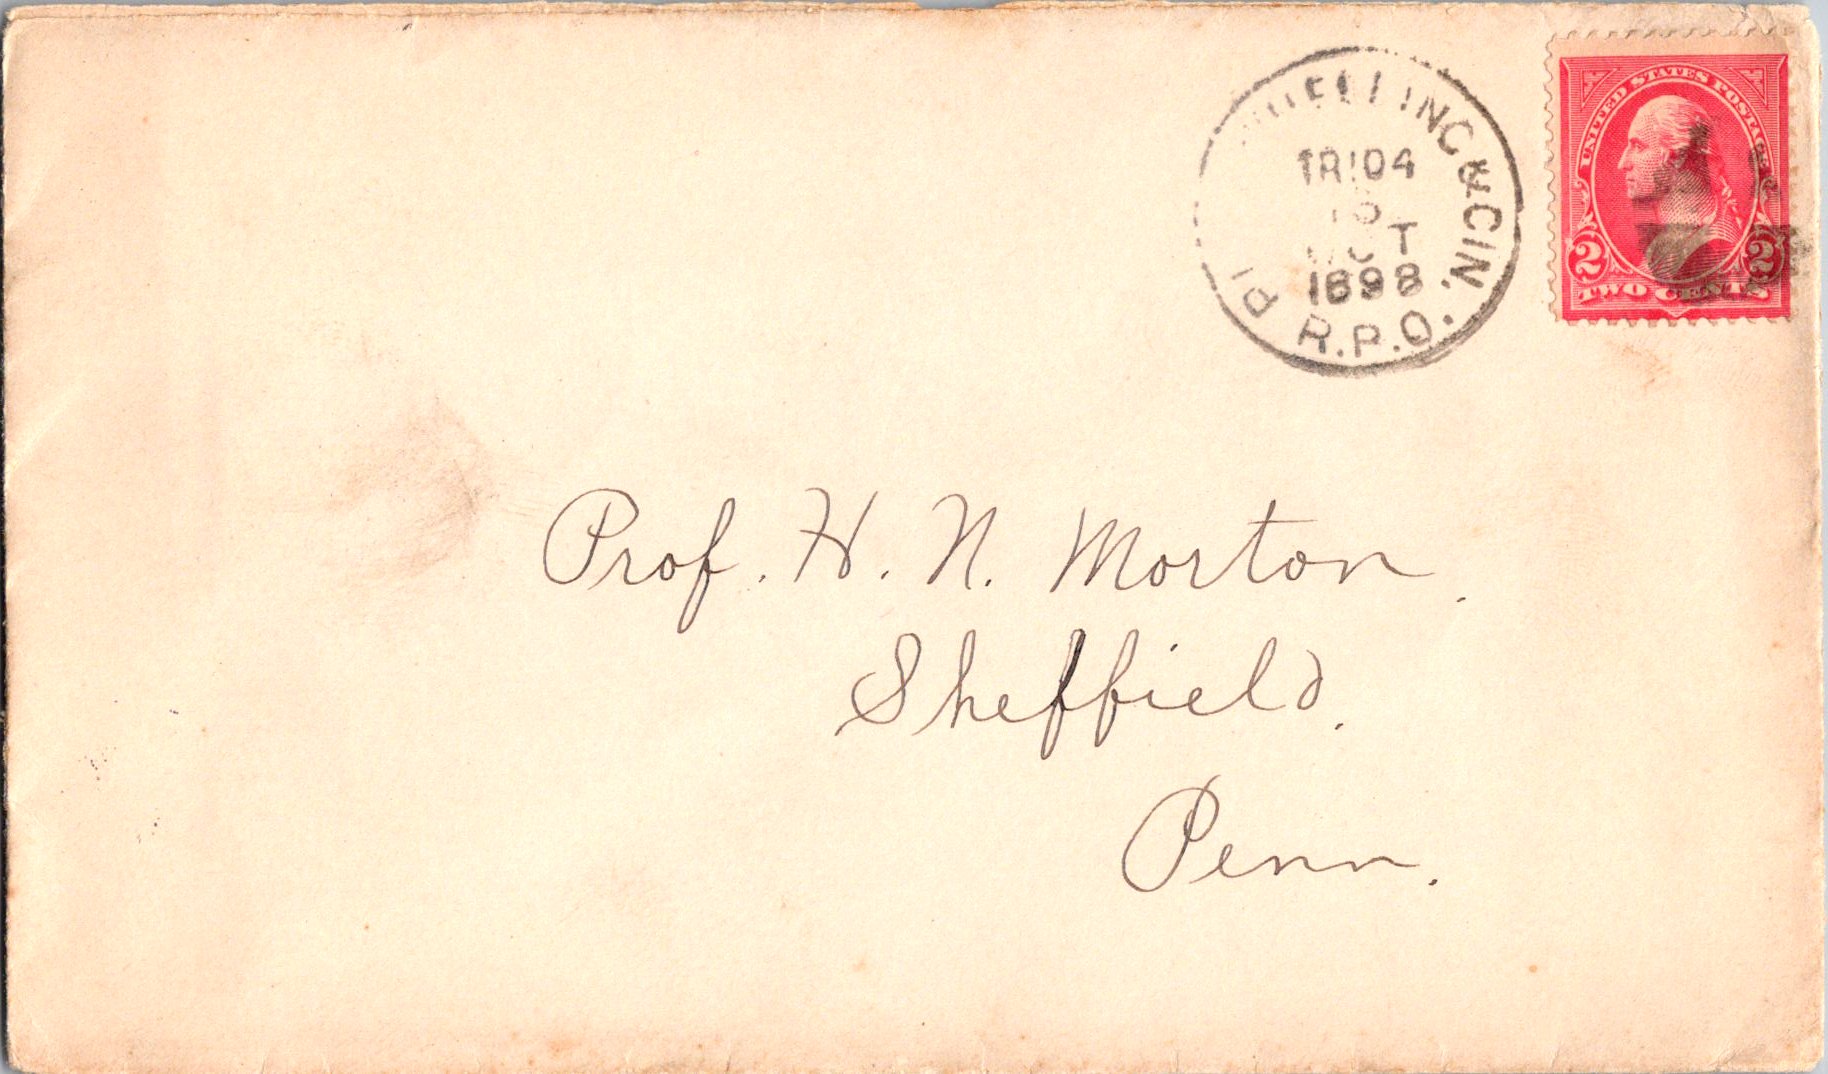 WHEELING & CIN.
TR 104
OCT
1898
R.P.O.
UNITED STATES POSTAGE
2 2
TWO CENTS
Prof. H. N. Morton,
Sheffield,
Penn.